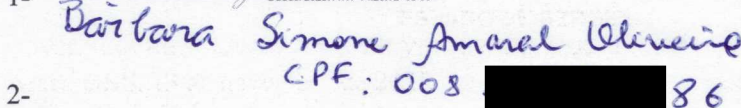 1-
Bárbara Simone Amaral Oliveira
CPF: 008 86
2-